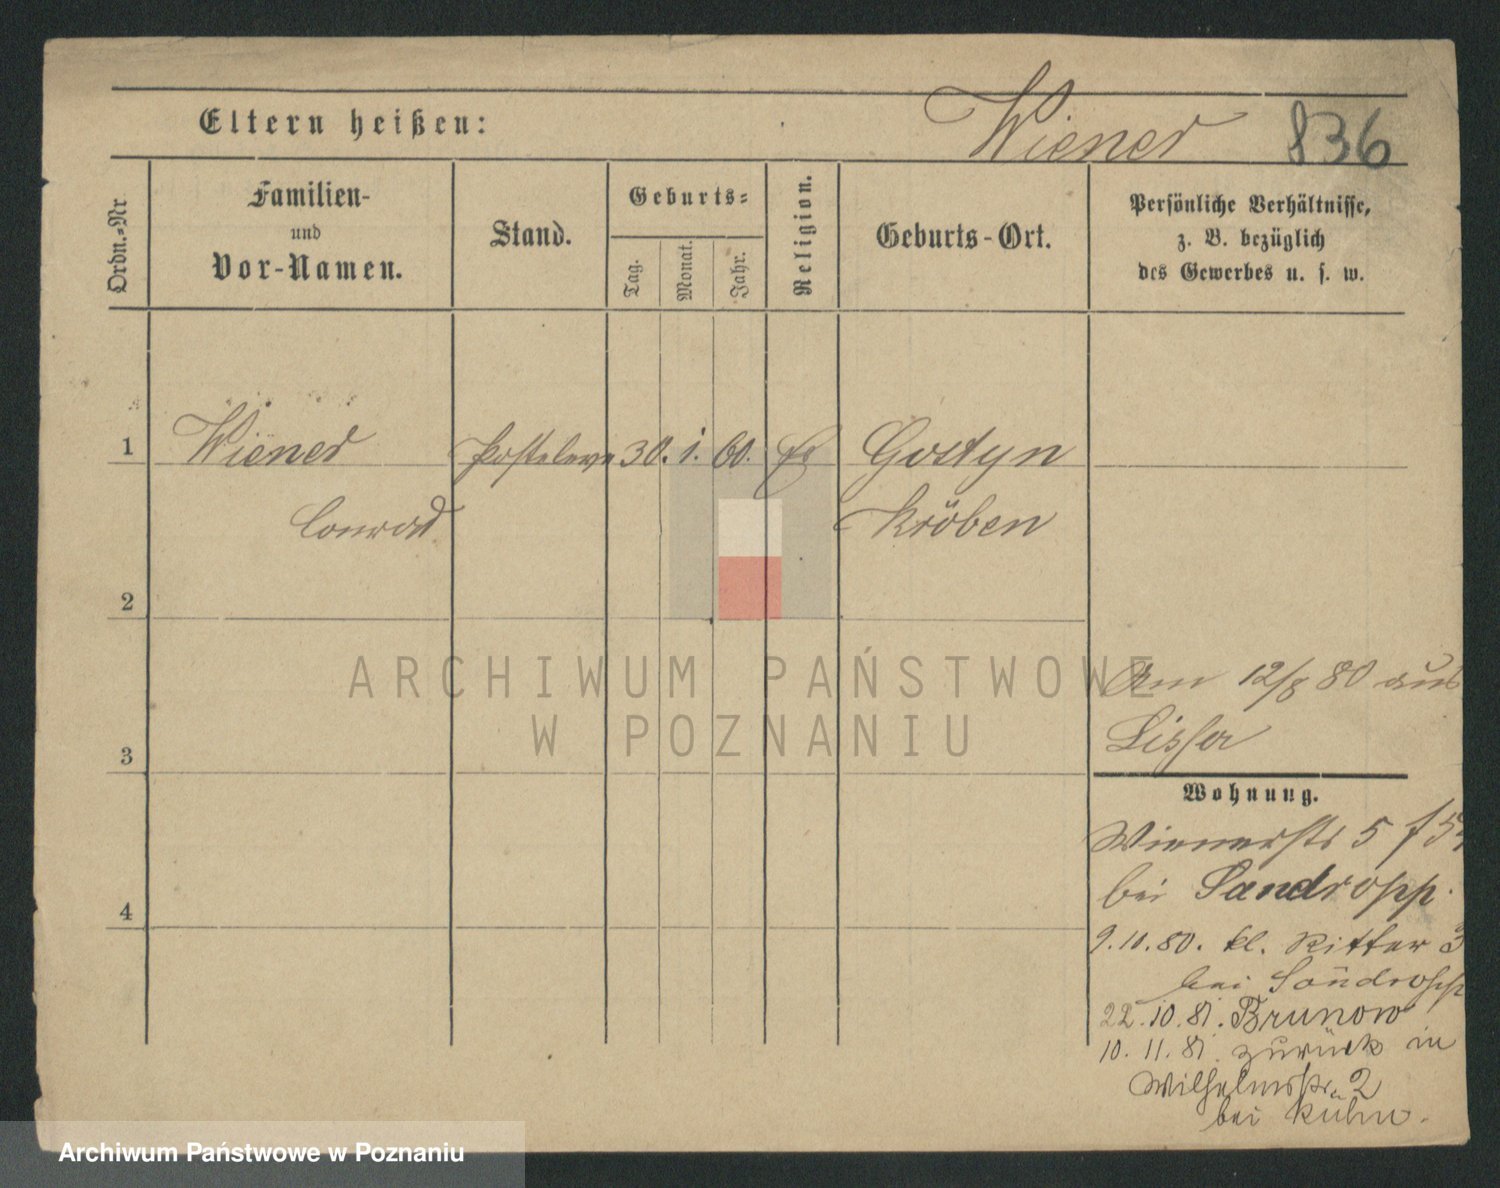 Eltern heißen:
Wiener 836
Ordn.-Nr
Familien-
und
Vor-Namen.
Stand.
Geburts-
Tag.
Monat.
Jahr.
Religion.
Geburts-Ort.
Persönliche Verhältnisse,
z. B. bezüglich
des Gewerbes u. s. w.
1 Wiener Posteleve 30. 1. 60. Gostyn
Conrad Kröben
2
3
4
Am 12/8 80 aus
Lissa
Wohnung.
5
bei Sandropp.
9.10.80. kl. Ritter 3
bei Sandropp
22.10.81. Brunow
10.11.81. zurück in
Wilhelmstr. 2
bei Kuhn.
ARCHIWUM PAŃSTWOWE
W POZNANIU
Archiwum Państwowe w Poznaniu